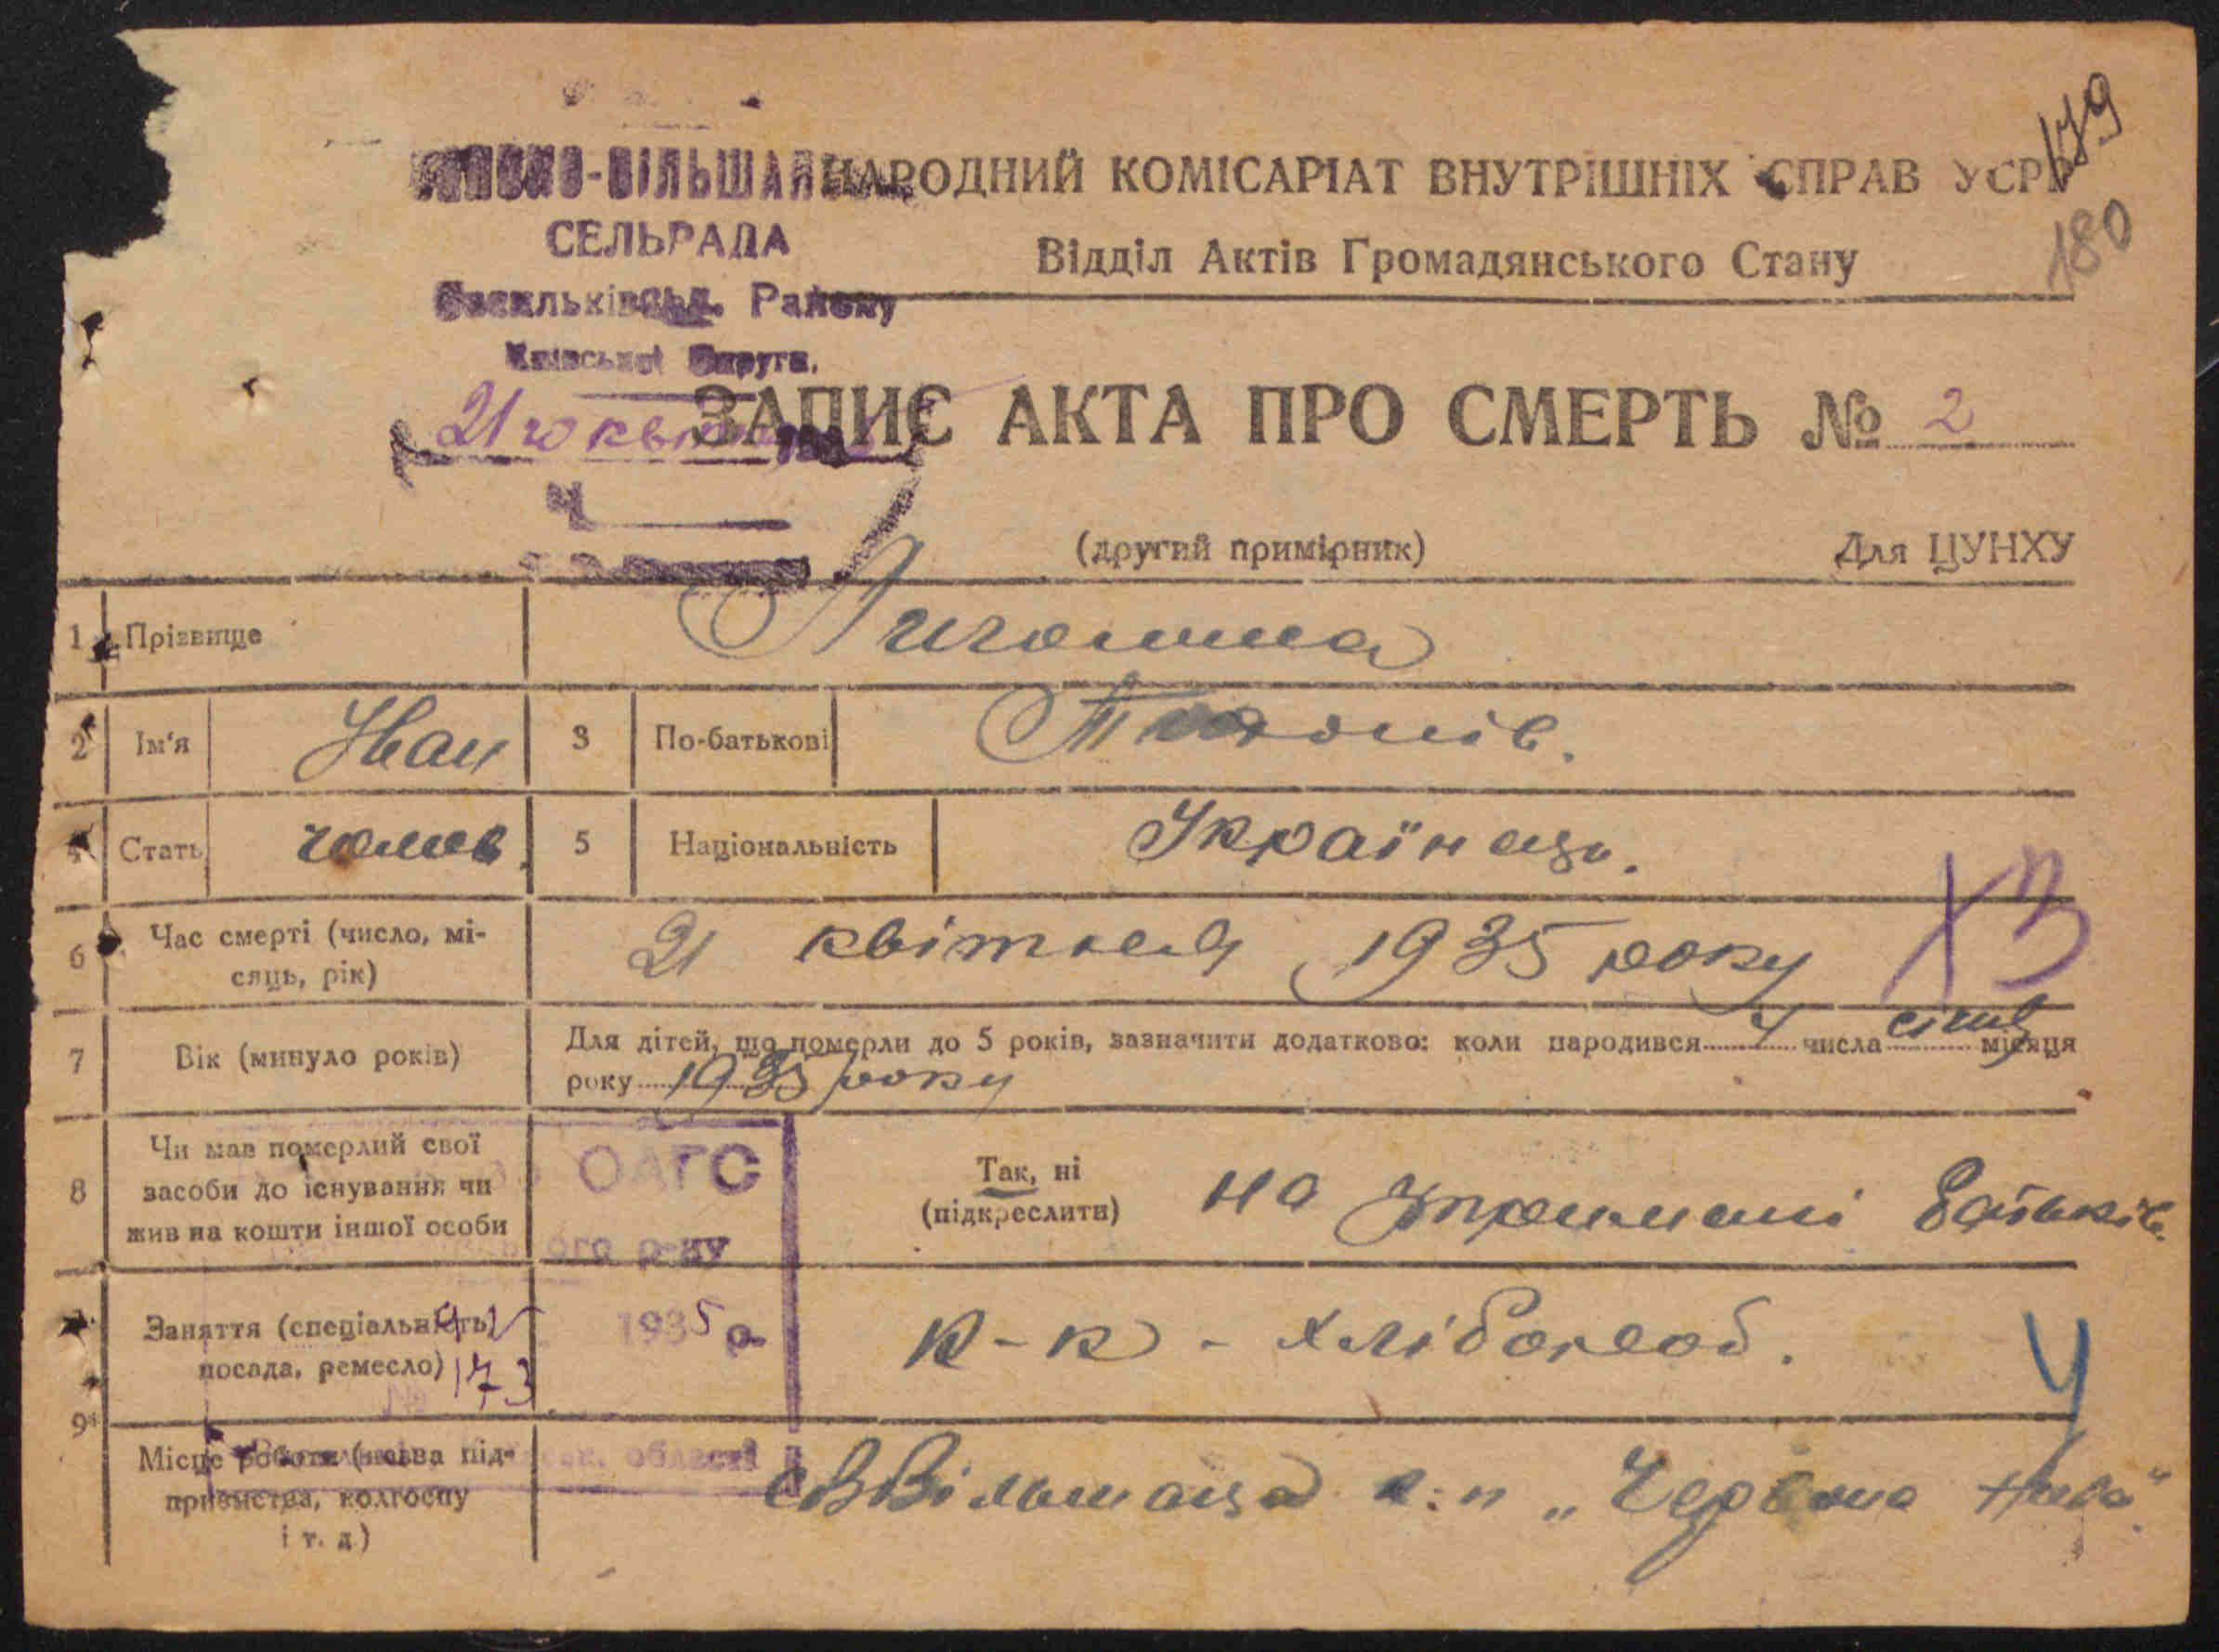 179
180
-ВІЛЬШАН
СЕЛЬРАДА
Васильківськ. Району
Київської Округи.
21 го квіт
НАРОДНИЙ КОМІСАРІАТ ВНУТРІШНІХ СПРАВ УСРР
Відділ Актів Громадянського Стану
ЗАПИС АКТА ПРО СМЕРТЬ № 2
(другий примірник) Для ЦУНХУ
1 Прізвище
2 Ім'я Иван 3 По-батькові
4 Стать чолов. 5 Національність Українець.
ХЗ
6 Час смерті (число, мі-
сяць, рік) 21 квітня 1935 року
7 Вік (минуло років) Для дітей, що померли до 5 років, зазначити додатково: коли народився 4 числа січня місяця
року 1935 року
8 Чи мав померлий свої
засоби до існування чи
жив на кошти іншої особи
Так, ні
(підкреслити) на утриманні батьків.
ОАГС
ого р-ну
1935 р.
№ 173
області
9 Заняття (спеціальність,
посада, ремесло) к-к - хлібороб.
У
Місце роботи (назва під-
приємства, колгоспу
і т. д.) Вільшанка "Червона Нива"